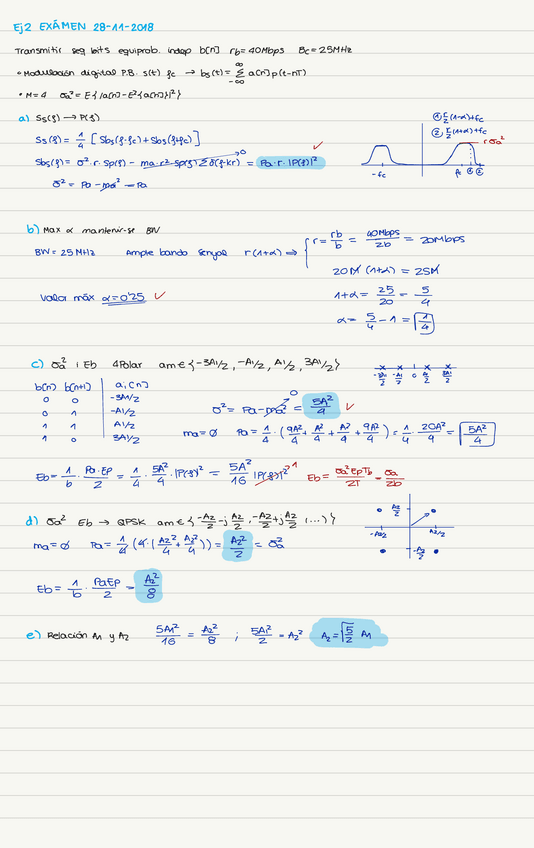 Ej2 EXÁMEN 28-11-2018
Transmitir seq bits equiprob. indep b[n] rb=40Mbps Bc=25MHz
• Modulación digital P.B. s(t) fc → bs(t)= ∞Σ-∞ a[n]p(t-nT)
• M=4 σa²=E{|a[n]-E²{a[n]}|²}
a) Ss(f) → P(f)
① r/2 (1-α)+fc
② r/2 (1+α)+fc
Ss(f) = 1/4 [Sbs(f-fc)+Sbs(f+fc)]
rσa²
Sbs(f) = σ²·r·Sp(f) - ma·r²·Sp(f) Σ δ(f-kr) = Pa·r·|P(f)|² ✓
0
-fc fc ① ②
σ² = Pa - ma² = Pa
b) Max α mantenir-se BW
BW = 25 MHz Ample banda senyal r(1+α) ⇒ { r = rb/b = 40Mbps/2b = 20Mbps
20M (1+α) = 25M
Valor máx α=0'25 ✓
1+α = 25/20 = 5/4
α = 5/4 - 1 = 1/4
c) σa² i Eb 4Polar am ∈ {-3A1/2, -A1/2, A1/2, 3A1/2}
-3A1/2 -A1/2 0 A1/2 3A1/2
b[n] b[n+1] a1[n]
0 0 -3A1/2
0 1 -A1/2
1 1 A1/2
1 0 3A1/2
σ² = Pa - ma² = 5A²/4 ✓
0
ma = Ø Pa = 1/4 · (9A²/4 + A²/4 + A²/4 + 9A²/4) = 1/4 · 20A²/4 = 5A²/4
Eb = 1/b · Pa·Ep/2 = 1/4 · 5A²/4 · |P(f)|² = 5A²/16 |P(f)|² 1 Eb = σa²EpTb/2T = σa/2b
d) σa² Eb → QPSK am ∈ {-A2/2 -j A2/2, -A2/2 +j A2/2 (...)}
A2/2
-A2/2 A2/2
-A2/2
ma = Ø Pa = 1/4 (4·(A2²/4 + A2²/4)) = A2²/2 = σa²
Eb = 1/b · PaEp/2 = A2²/8
e) Relación A1 y A2 5A1²/16 = A2²/8 ; 5A1²/2 = A2² A2 = √5/2 A1